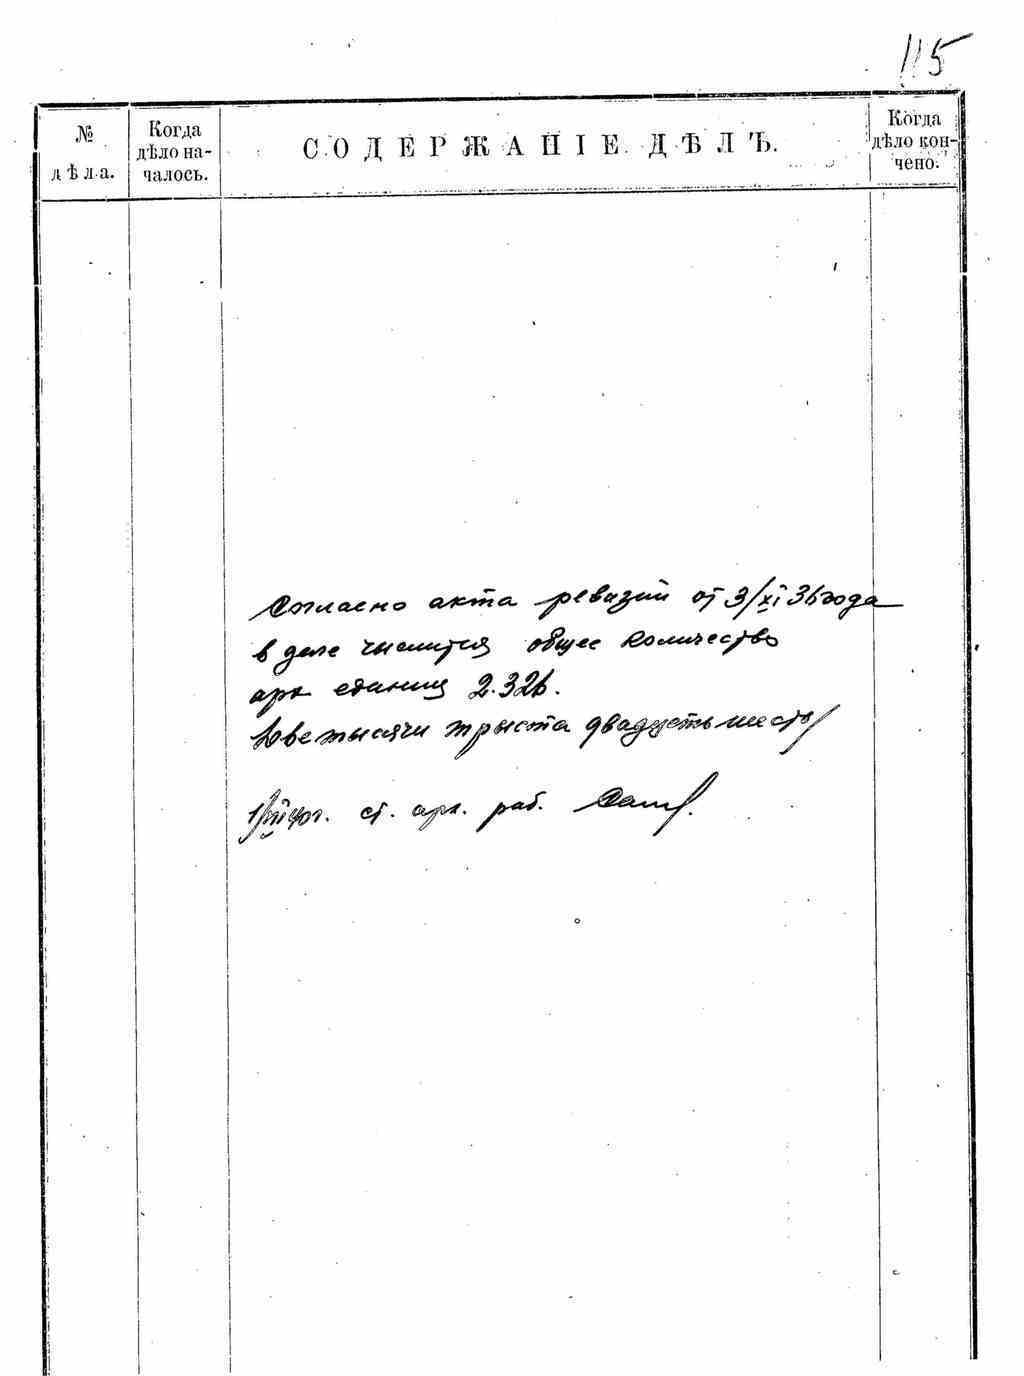 115
№
дѣла.
Когда
дѣло на-
чалось.
СОДЕРЖАНІЕ ДѢЛЪ.
Когда
дѣло кон-
чено.
Согласно акта ревизии от 3/XI 36 года
в деле числится общее количество
арх единиц 2.326.
Две тысячи трыста двадцать шесть/
ст. арх. раб.